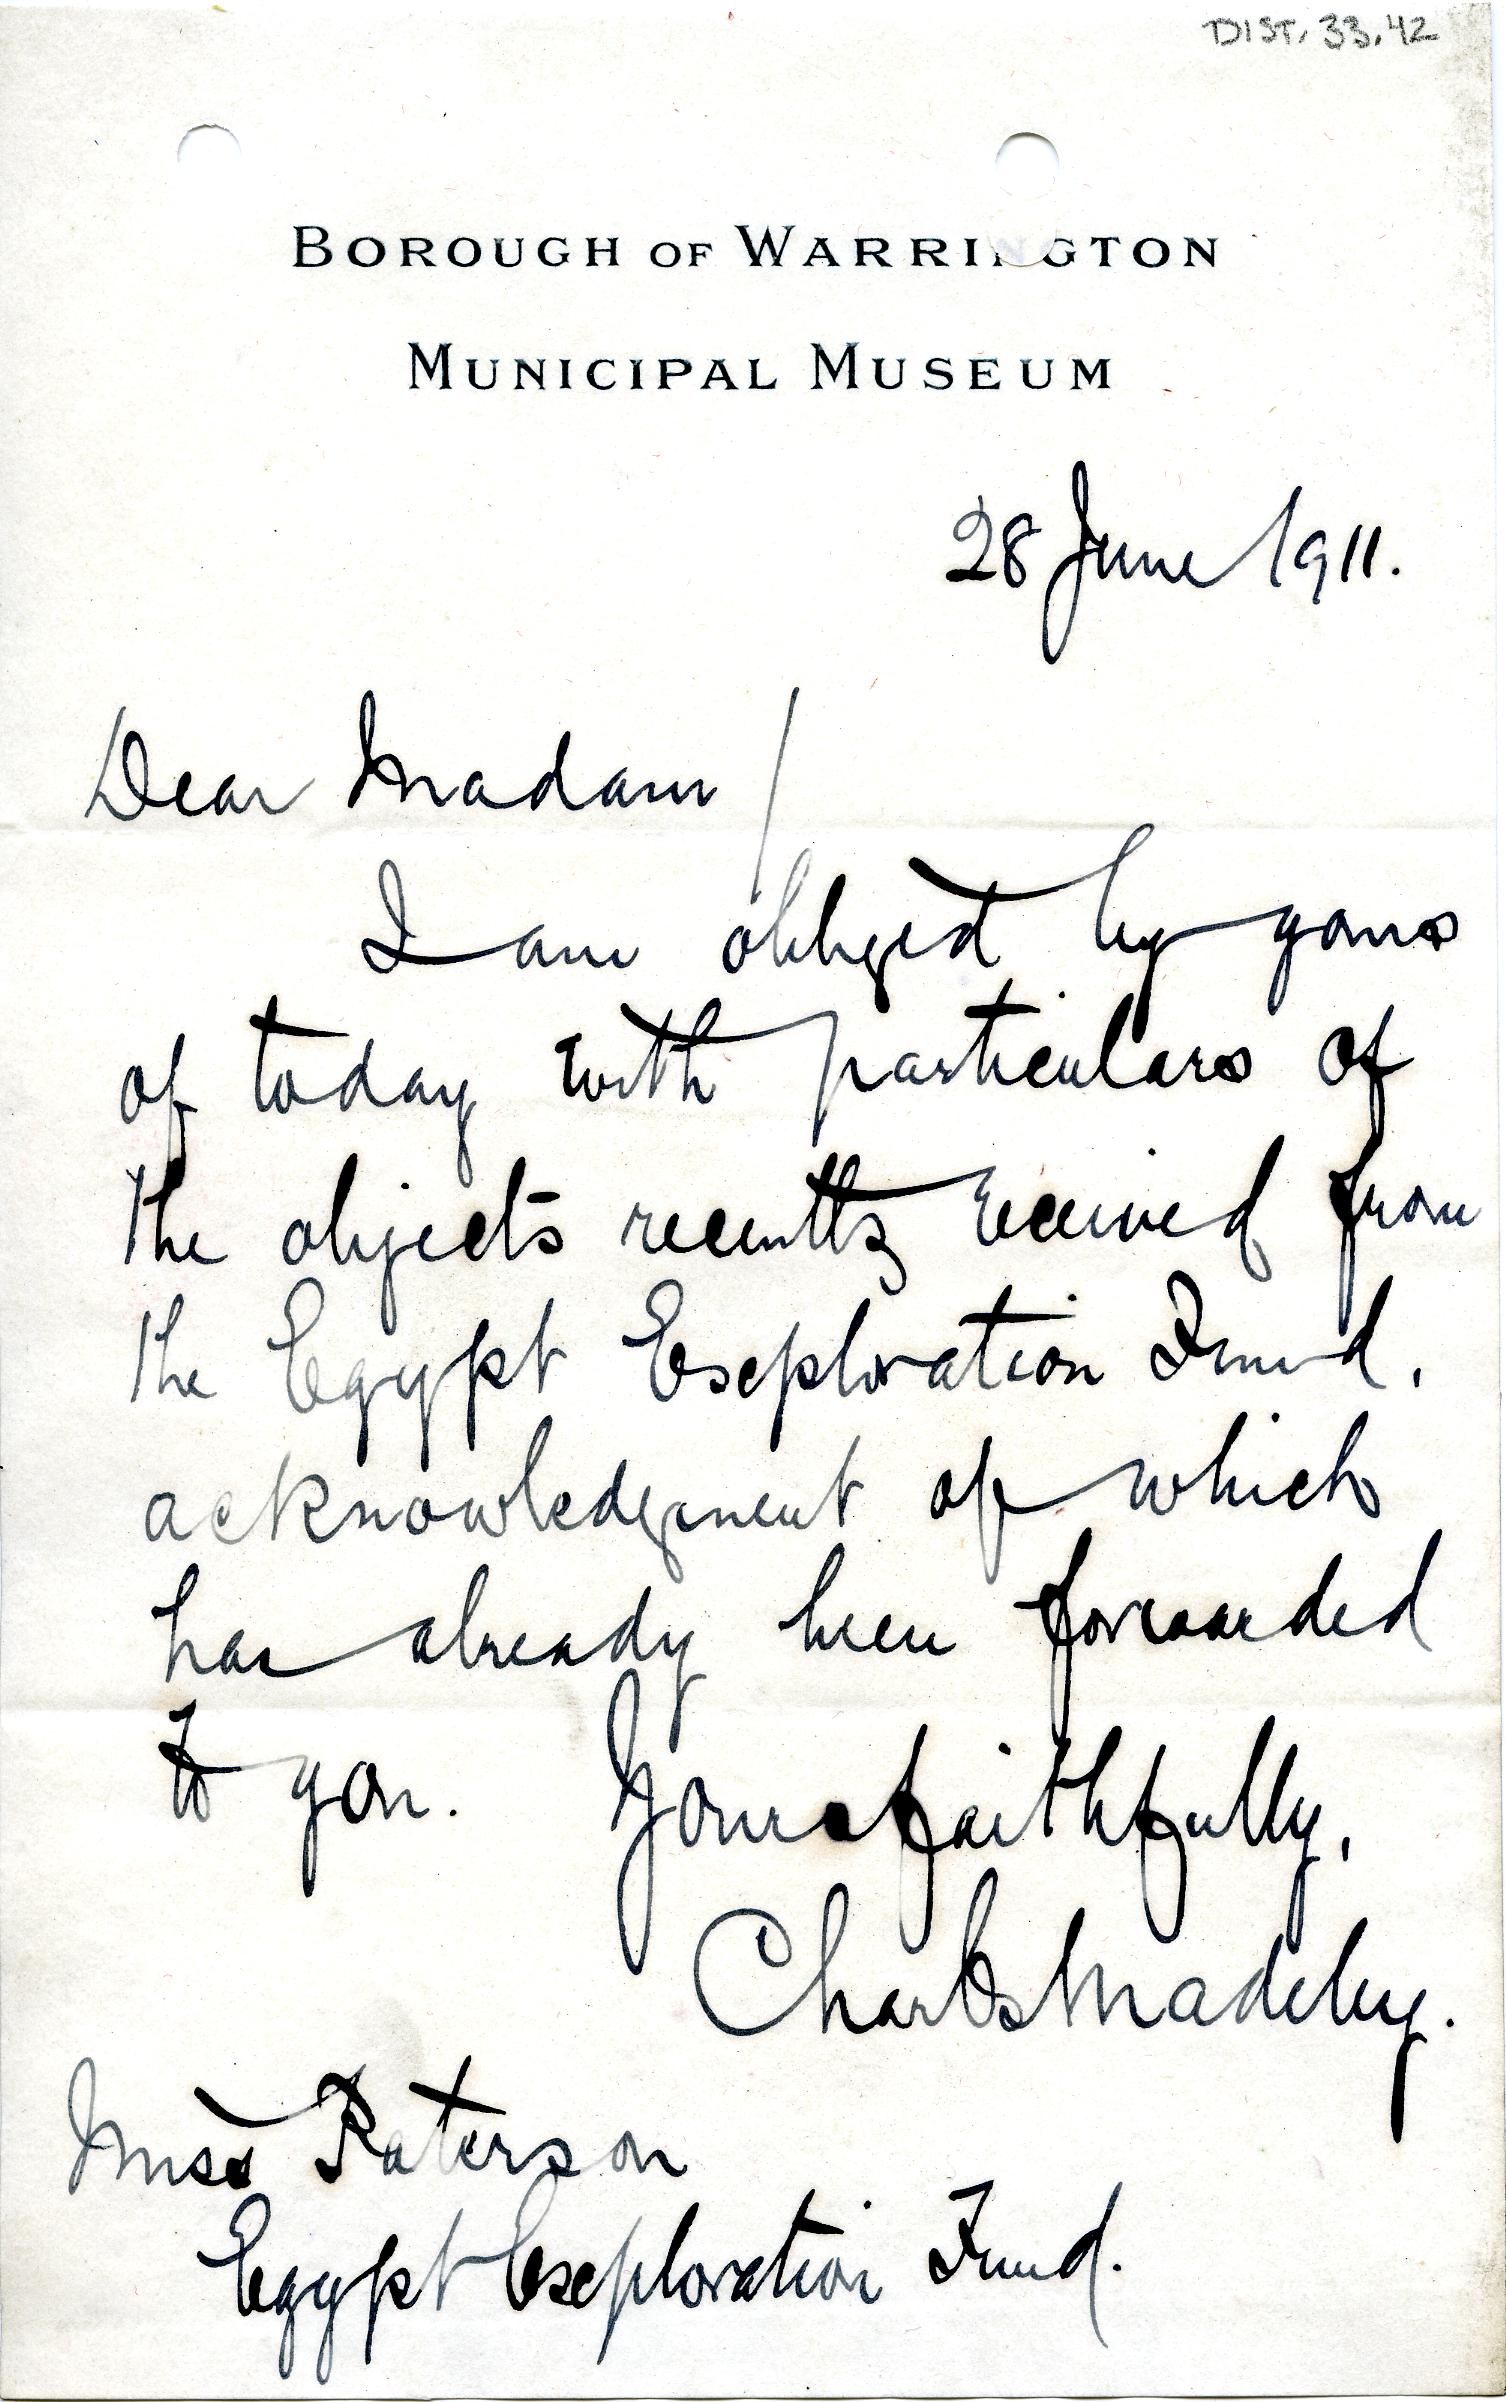 DIST. 33.42
BOROUGH OF WARRINGTON
MUNICIPAL MUSEUM
28 June 1911.
Dear Madam /
I am obliged by yours
of today with particulars of
the objects recently received from
the Egypt Exploration Fund,
acknowledgment of which
has already been forwarded
to you. Yours faithfully,
Charles Madeley.
Miss Paterson
Egypt Exploration Fund.